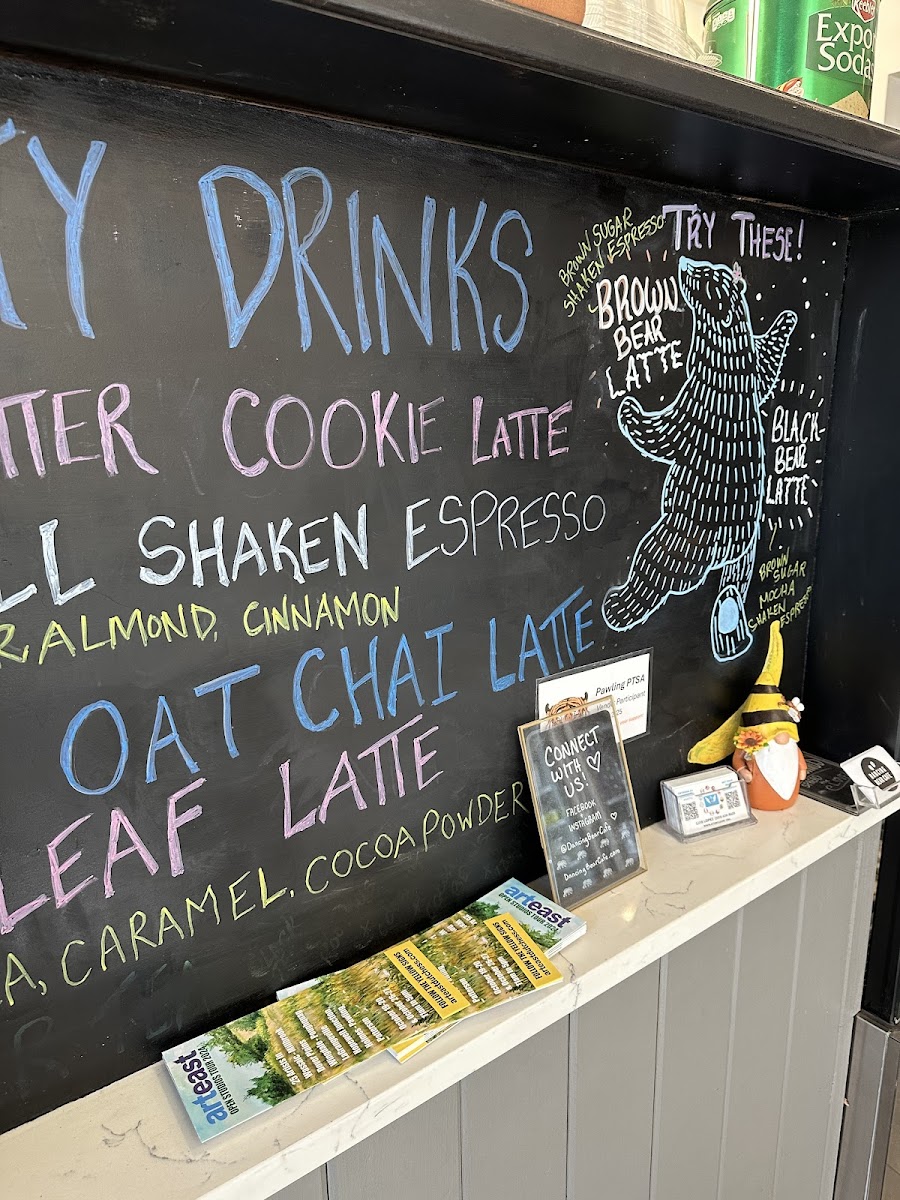 Expo
Soda
TY DRINKS
TTER COOKIE LATTE
LL SHAKEN ESPRESSO
R ALMOND, CINNAMON
OAT CHAI LATTE
LEAF LATTE
A, CARAMEL, COCOA POWDER
TRY THESE!
BROWN SUGAR
SHAKEN ESPRESSO
BROWN
BEAR
LATTE
BLACK
BEAR
LATTE
BROWN
SUGAR
MOCHA
SHAKEN ESPRESSO
Pawling PTSA
Participant
CONNECT
WITH
US!
FACEBOOK
INSTAGRAM
@DancingBearCafe
DancingBearCafe.com
arteast
OPEN STUDIOS TOUR 2024
FOLLOW THE YELLOW SIGNS
arteastdutchess.com
arteast
OPEN STUDIOS TOUR 2024
FOLLOW THE YELLOW SIGNS
arteastdutchess.com